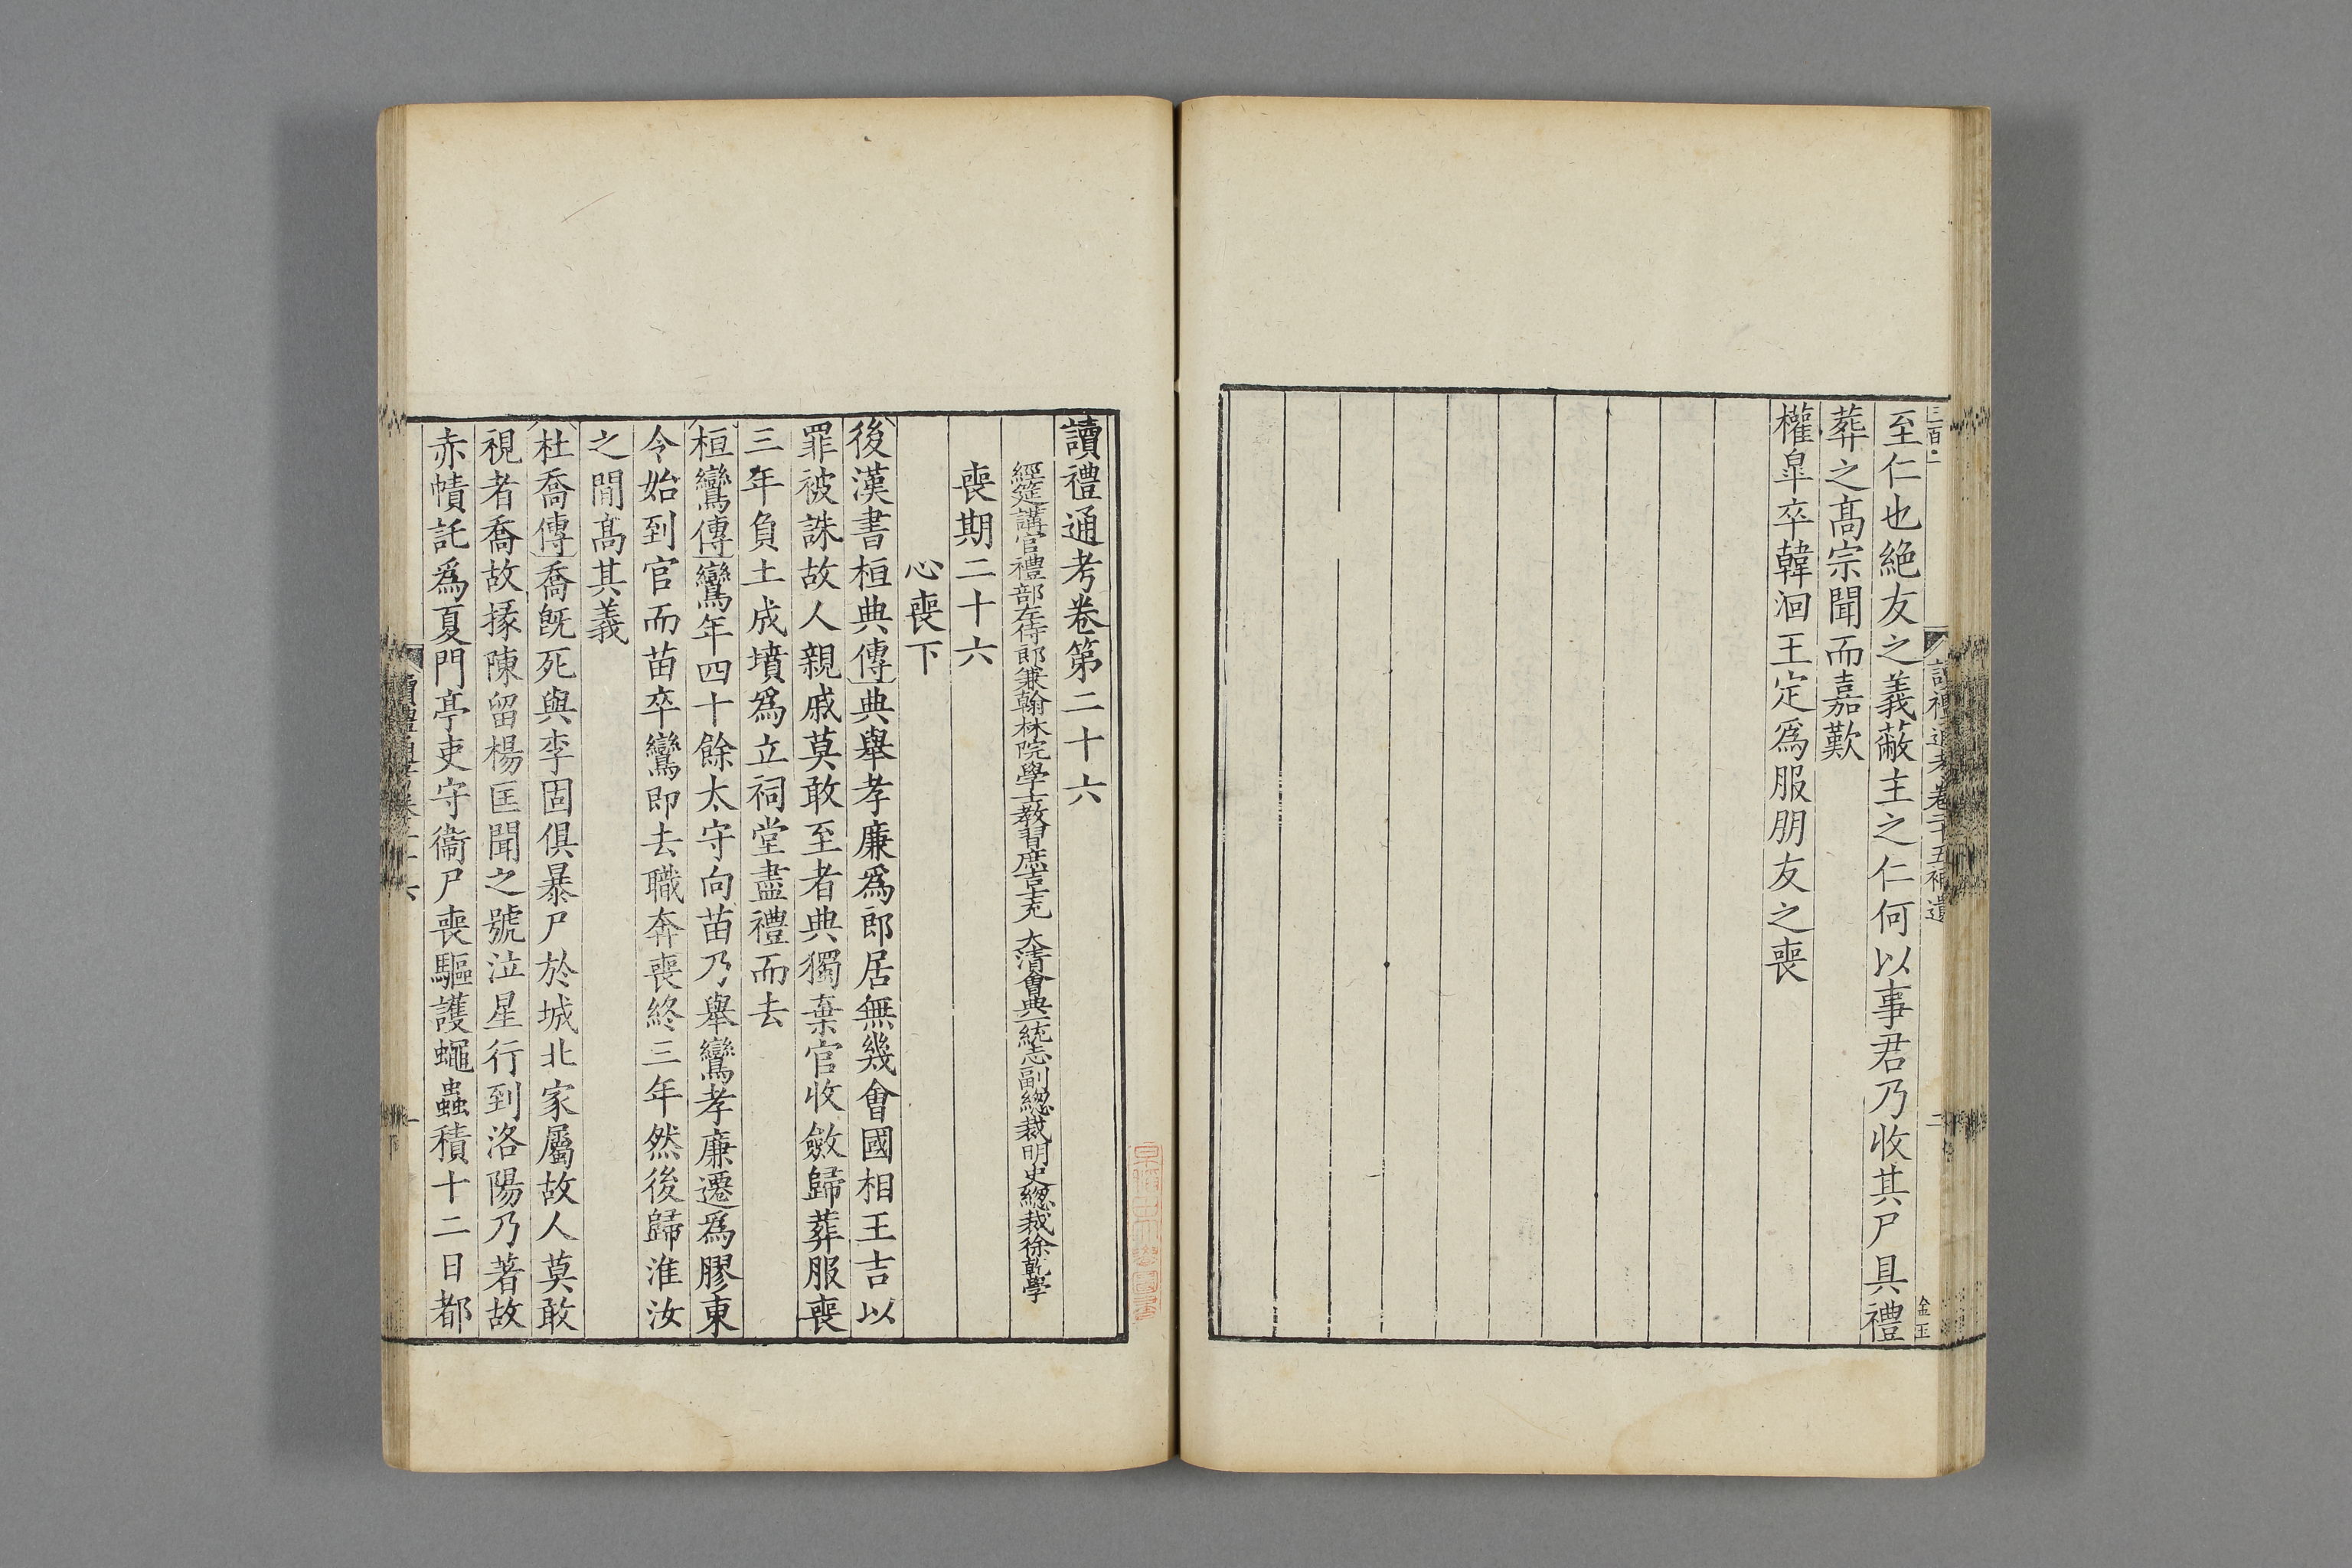 至仁也絶友之義蔽主之仁何以事君乃收其尸具禮
葬之髙宗聞而嘉歎
權皐卒韓洄王定爲服朋友之喪
讀禮通考卷第二十六
經筵講官禮部左侍郎兼翰林院學士教習庶吉士充 大清會典一統志副總裁明史總裁徐乾學
喪期二十六
心喪下
後漢書桓典傳典舉孝廉爲郎居無幾會國相王吉以
罪被誅故人親戚莫敢至者典獨棄官收斂歸葬服喪
三年負土成墳爲立祠堂盡禮而去
桓鸞傳鸞年四十餘太守向苗乃舉鸞孝廉遷爲膠東
令始到官而苗卒鸞即去職奔喪終三年然後歸淮汝
之閒髙其義
杜喬傳喬旣死與李固俱暴尸於城北家屬故人莫敢
視者喬故掾陳留楊匡聞之號泣星行到洛陽乃著故
赤幘託爲夏門亭吏守衞尸喪驅護蠅蟲積十二日都